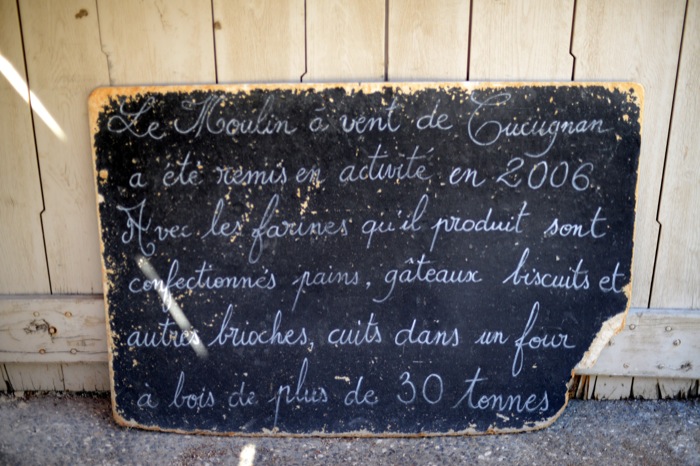 Le Moulin à vent de Cucugnan
a été remis en activité en 2006
Avec les farines qu'il produit sont
confectionnés pains, gâteaux biscuits et
autres brioches, cuits dans un four
à bois de plus de 30 tonnes